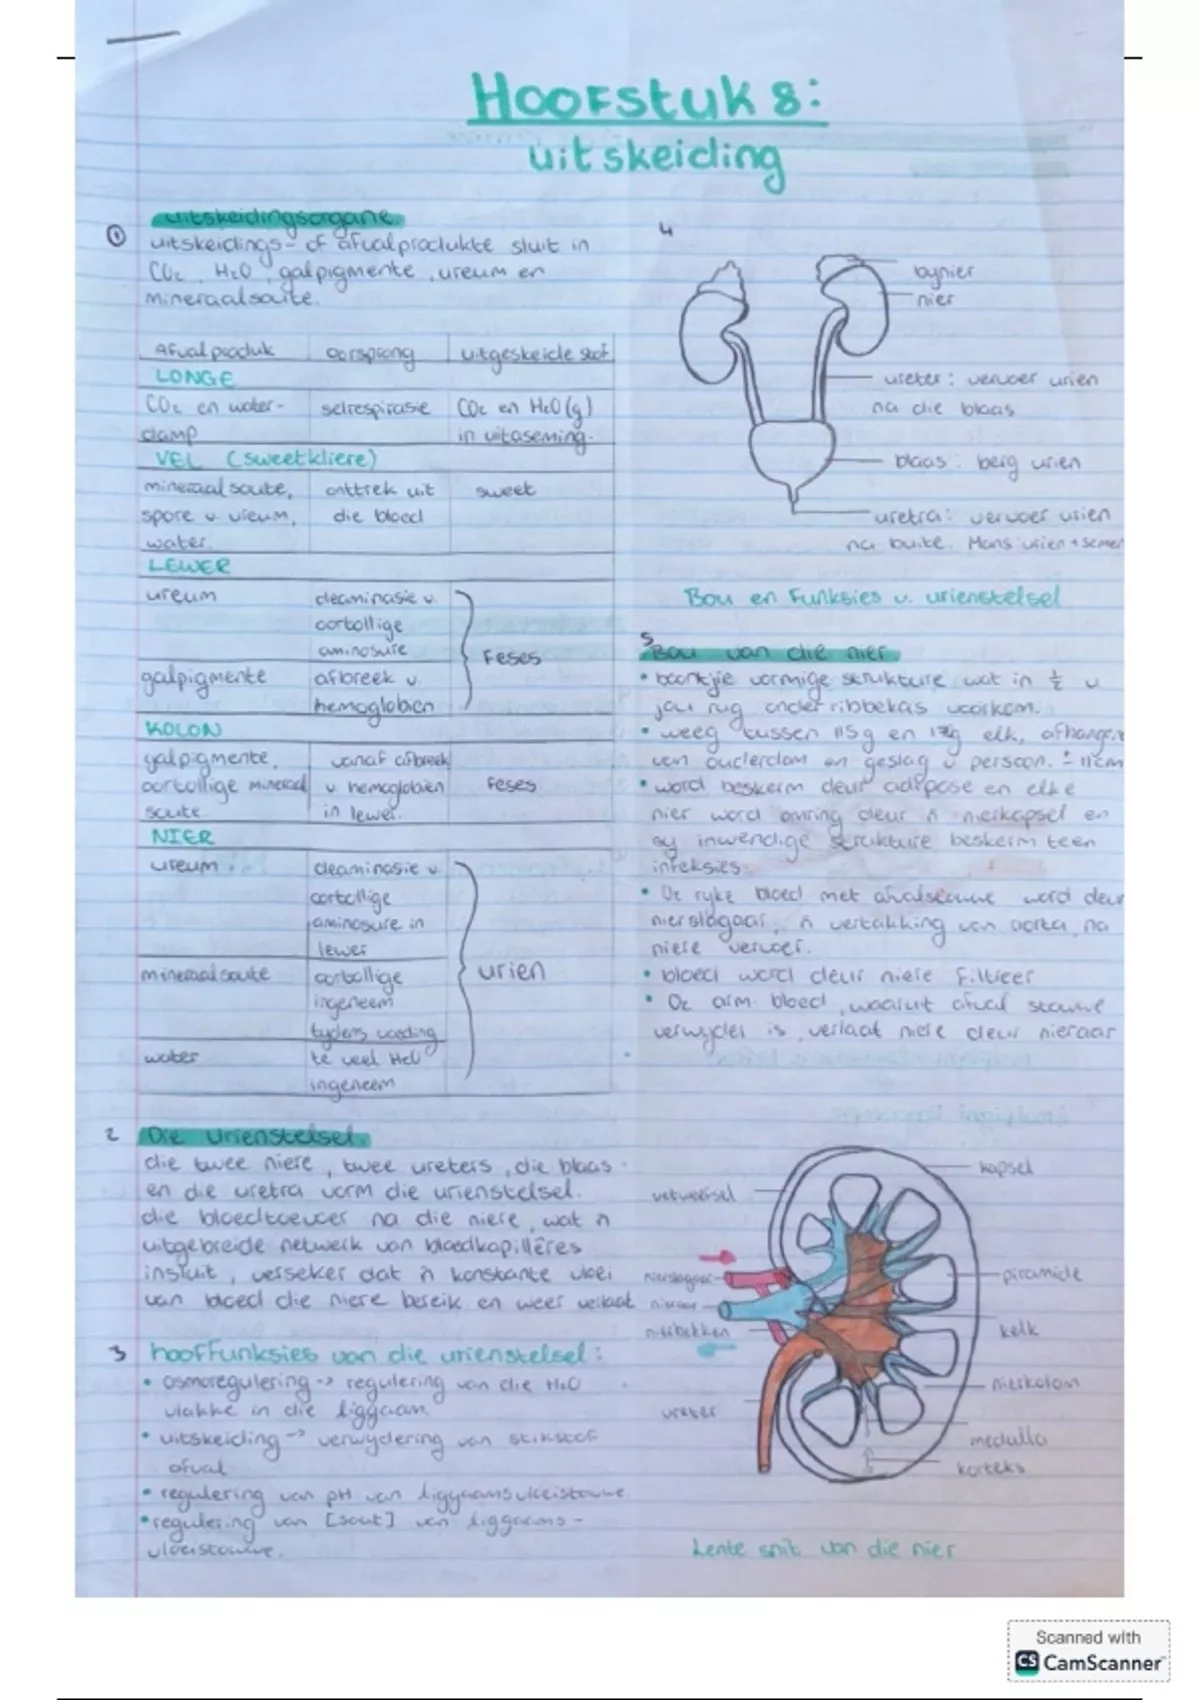 Hoofstuk 8:
uitskeiding
① uitskeidingsorgane.
uitskeidings- of afvalprodukte sluit in
CO₂, H₂O, galpigmente, ureum en
mineraalsoute.
Afvalproduk oorsprong uitgeskeide stof
LONGE
CO₂ en water- selrespirasie CO₂ en H₂O(g)
damp in uitaseming.
VEL (sweetkliere)
mineraal soute, onttrek uit sweet
spore v. ureum, die bloed
water.
LEWER
ureum deaminasie v.
oortollige
aminosure
Feses
galpigmente afbreek v.
hemoglobien
KOLON
galpigmente, vanaf afbreek
oortollige mineraal v hemoglobien feses
soute in lewer.
NIER
ureum deaminasie v
oortollige
aminosure in
lewer
mineraal soute oortollige urien
ingeneem
tydens voeding
water te veel H₂O
ingeneem
2 Die urienstelsel.
die twee niere, twee ureters, die blaas
en die uretra vorm die urienstelsel.
die bloedtoevoer na die niere, wat ñ
uitgebreide netwerk van bloedkapillêres
insluit, verseker dat ñ konstante vloei
van bloed die niere bereik en weer verlaat
3 hooffunksies van die urienstelsel:
• osmoregulering -> regulering van die H₂O
vlakke in die liggaam.
• uitskeiding -> verwydering van stikstof
afval
• regulering van pH van liggaamsvloeistowwe
• regulering van [sout] van liggaams-
vloeistowwe.
4
bynier
nier
ureter: vervoer urien
na die blaas
blaas: berg urien
uretra: vervoer urien
na buite. Mans urien + semen
Bou en Funksies v. urienstelsel
5 Bou van die nier
• boontjie vormige strukture wat in ½ v
jou rug onder ribbekas voorkom.
• weeg tussen 115g en 170g elk, afhangend
van ouderdom en geslag v persoon. ± 11cm
• word beskerm deur adipose en elke
nier word omring deur ñ nierkapsel en
sy inwendige strukture beskerm teen
infeksies.
• O₂ ryke bloed met afvalstowwe word deur
nierslagaar, ñ vertakking van aorta, na
niere vervoer.
• bloed word deur niere filtreer
• O₂ arm bloed, waaruit afval stowwe
verwyder is, verlaat niere deur nieraar
kapsel
vetweefsel
nierslagaar
piramide
nieraar
nierbekken
kelk
nierkolom
ureter
medulla
korteks
Lente snit van die nier
Scanned with
CS CamScanner